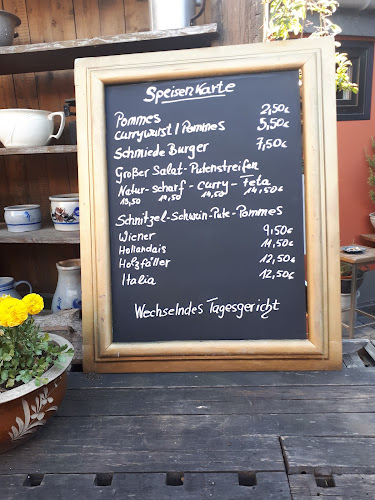 Speisenkarte
Pommes 2,50€
Currywurst / Pommes 5,50€
Schmiede Burger 7,50€
Großer Salat-Putenstreifen
Natur-scharf-Curry-Feta
13,50 14,50 14,50 14,50€
Schnitzel-Schwein-Pute-Pommes
Wiener 9,50€
Hollandais 11,50€
Holzfäller 12,50€
Italia 12,50€
Wechselndes Tagesgericht